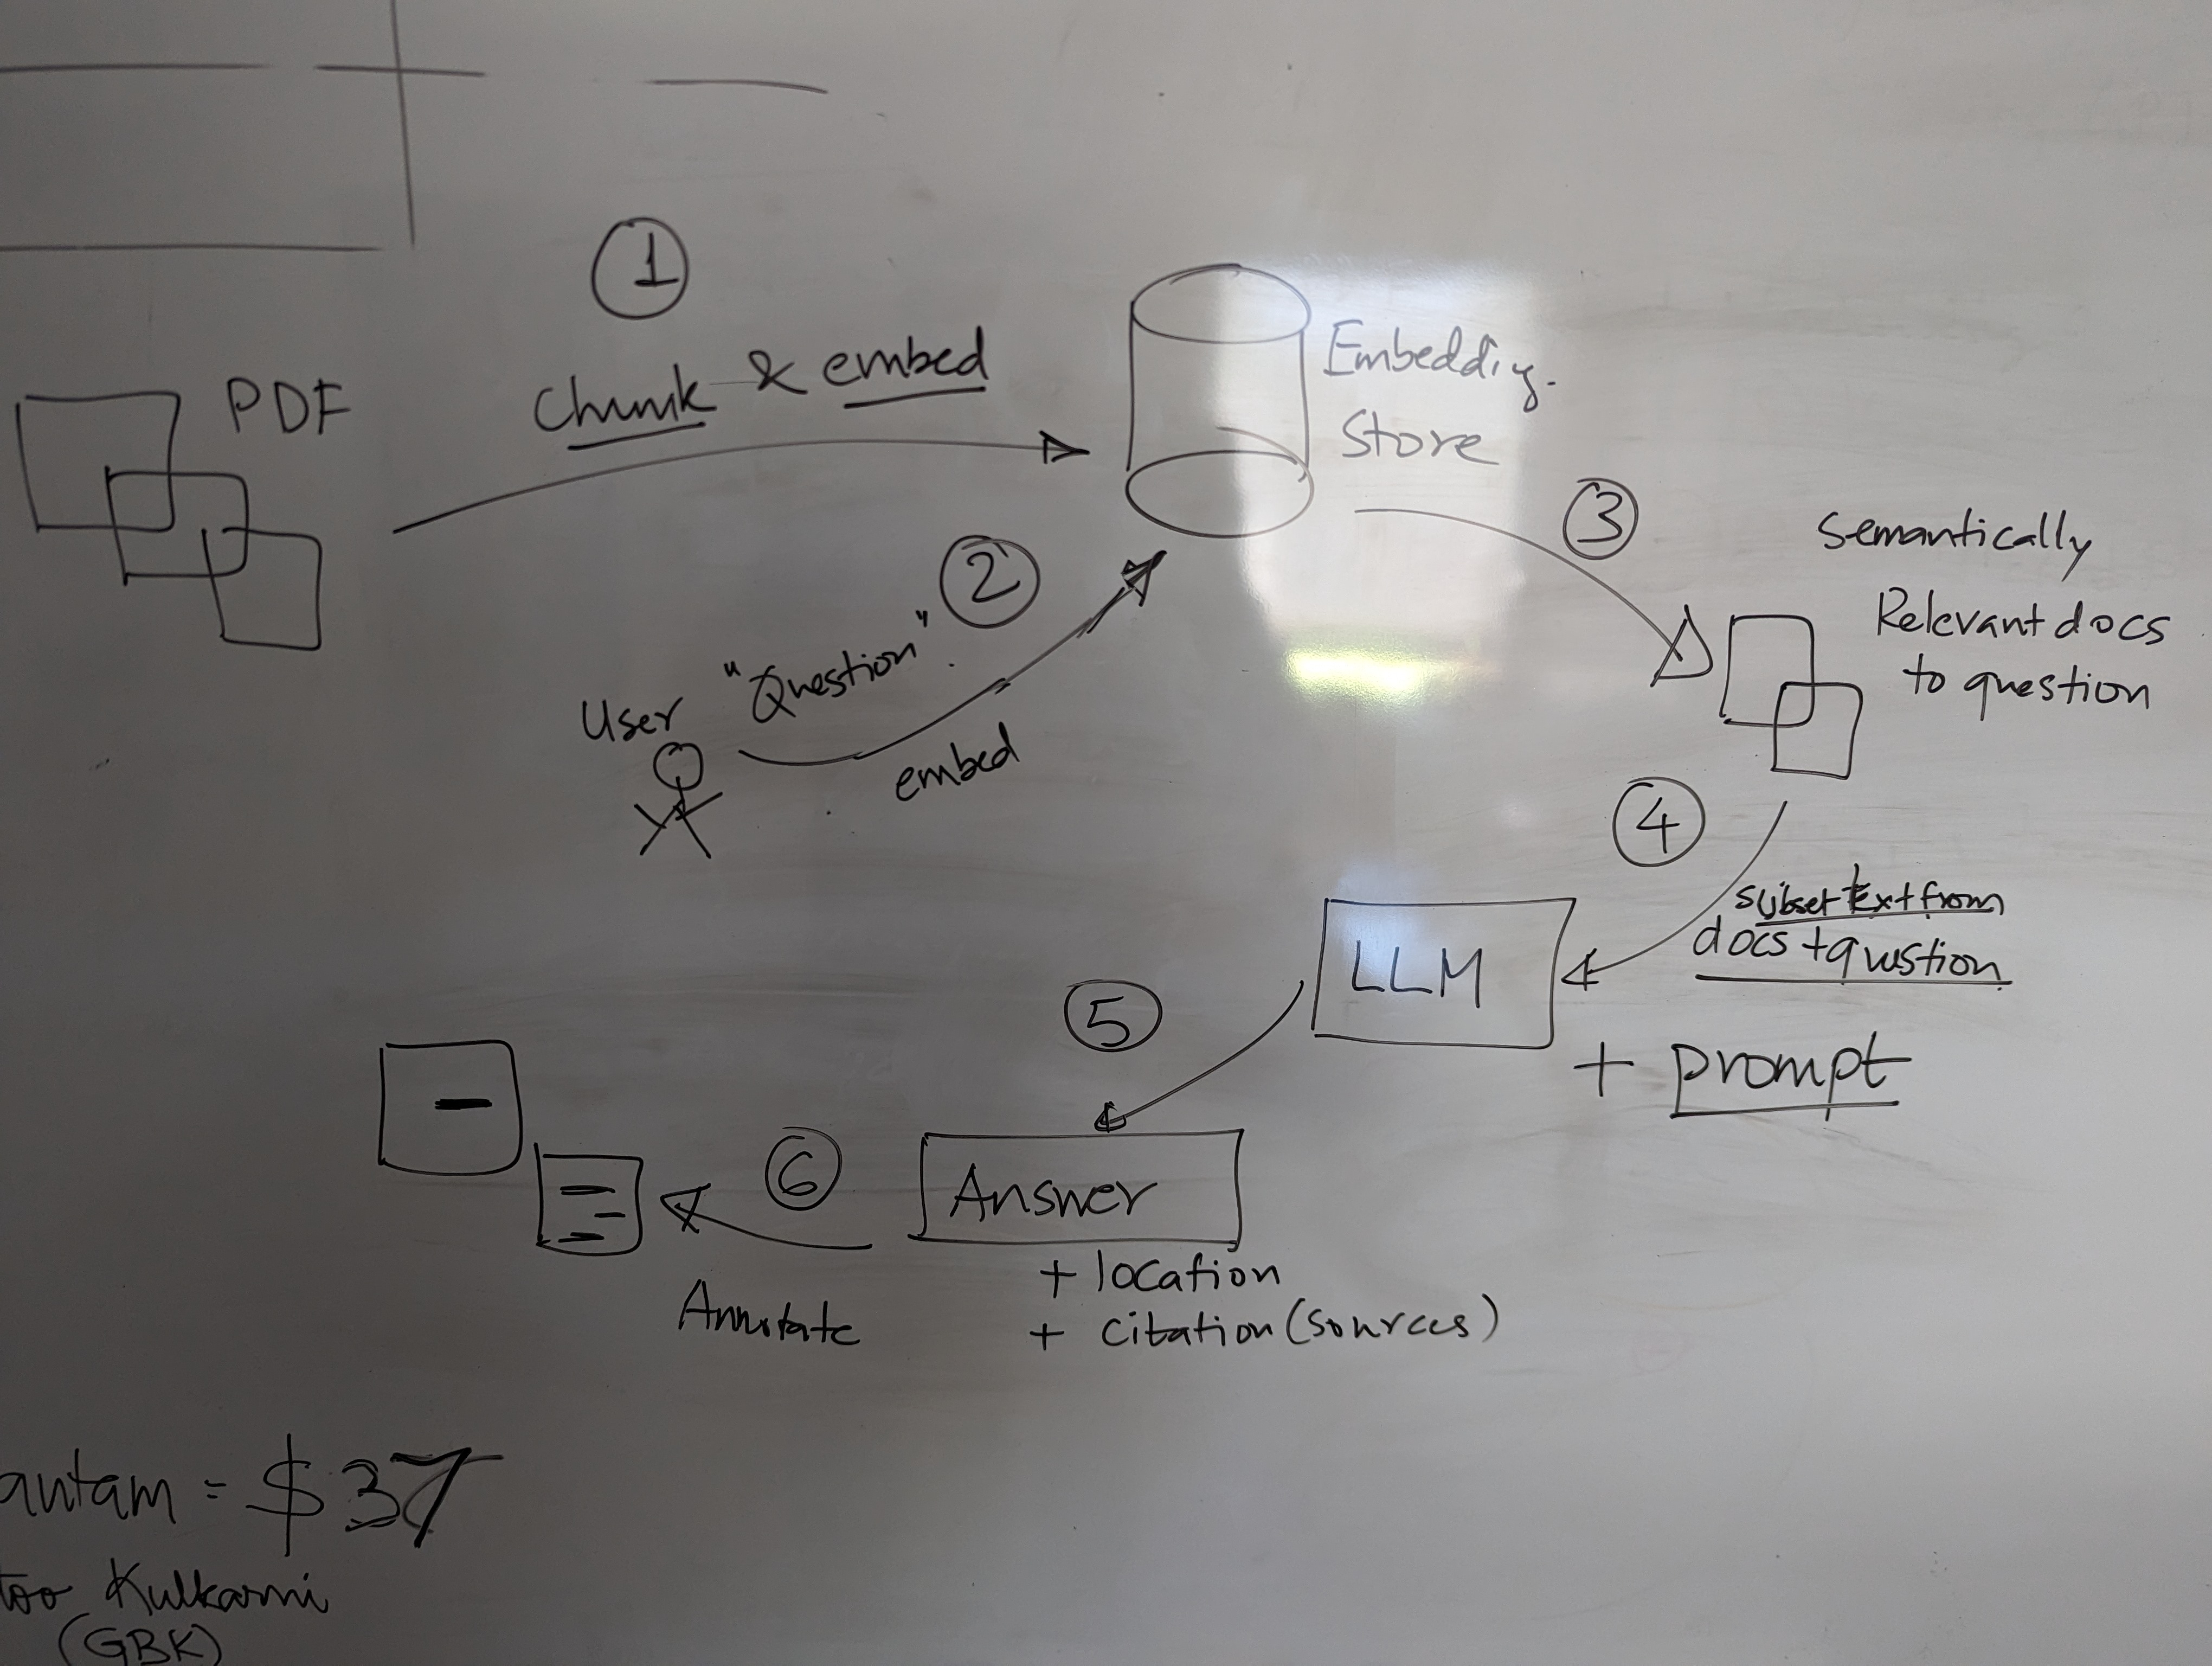 1
PDF
Chunk & embed
Embedding
Store
2
User "Question".
embed
3
Semantically
Relevant docs
to question
4
subset text from
docs + question
LLM
+ prompt
5
Answer
+ location
+ citation (sources)
6
Annotate
antam = $37
too Kulkarni
(GBK)